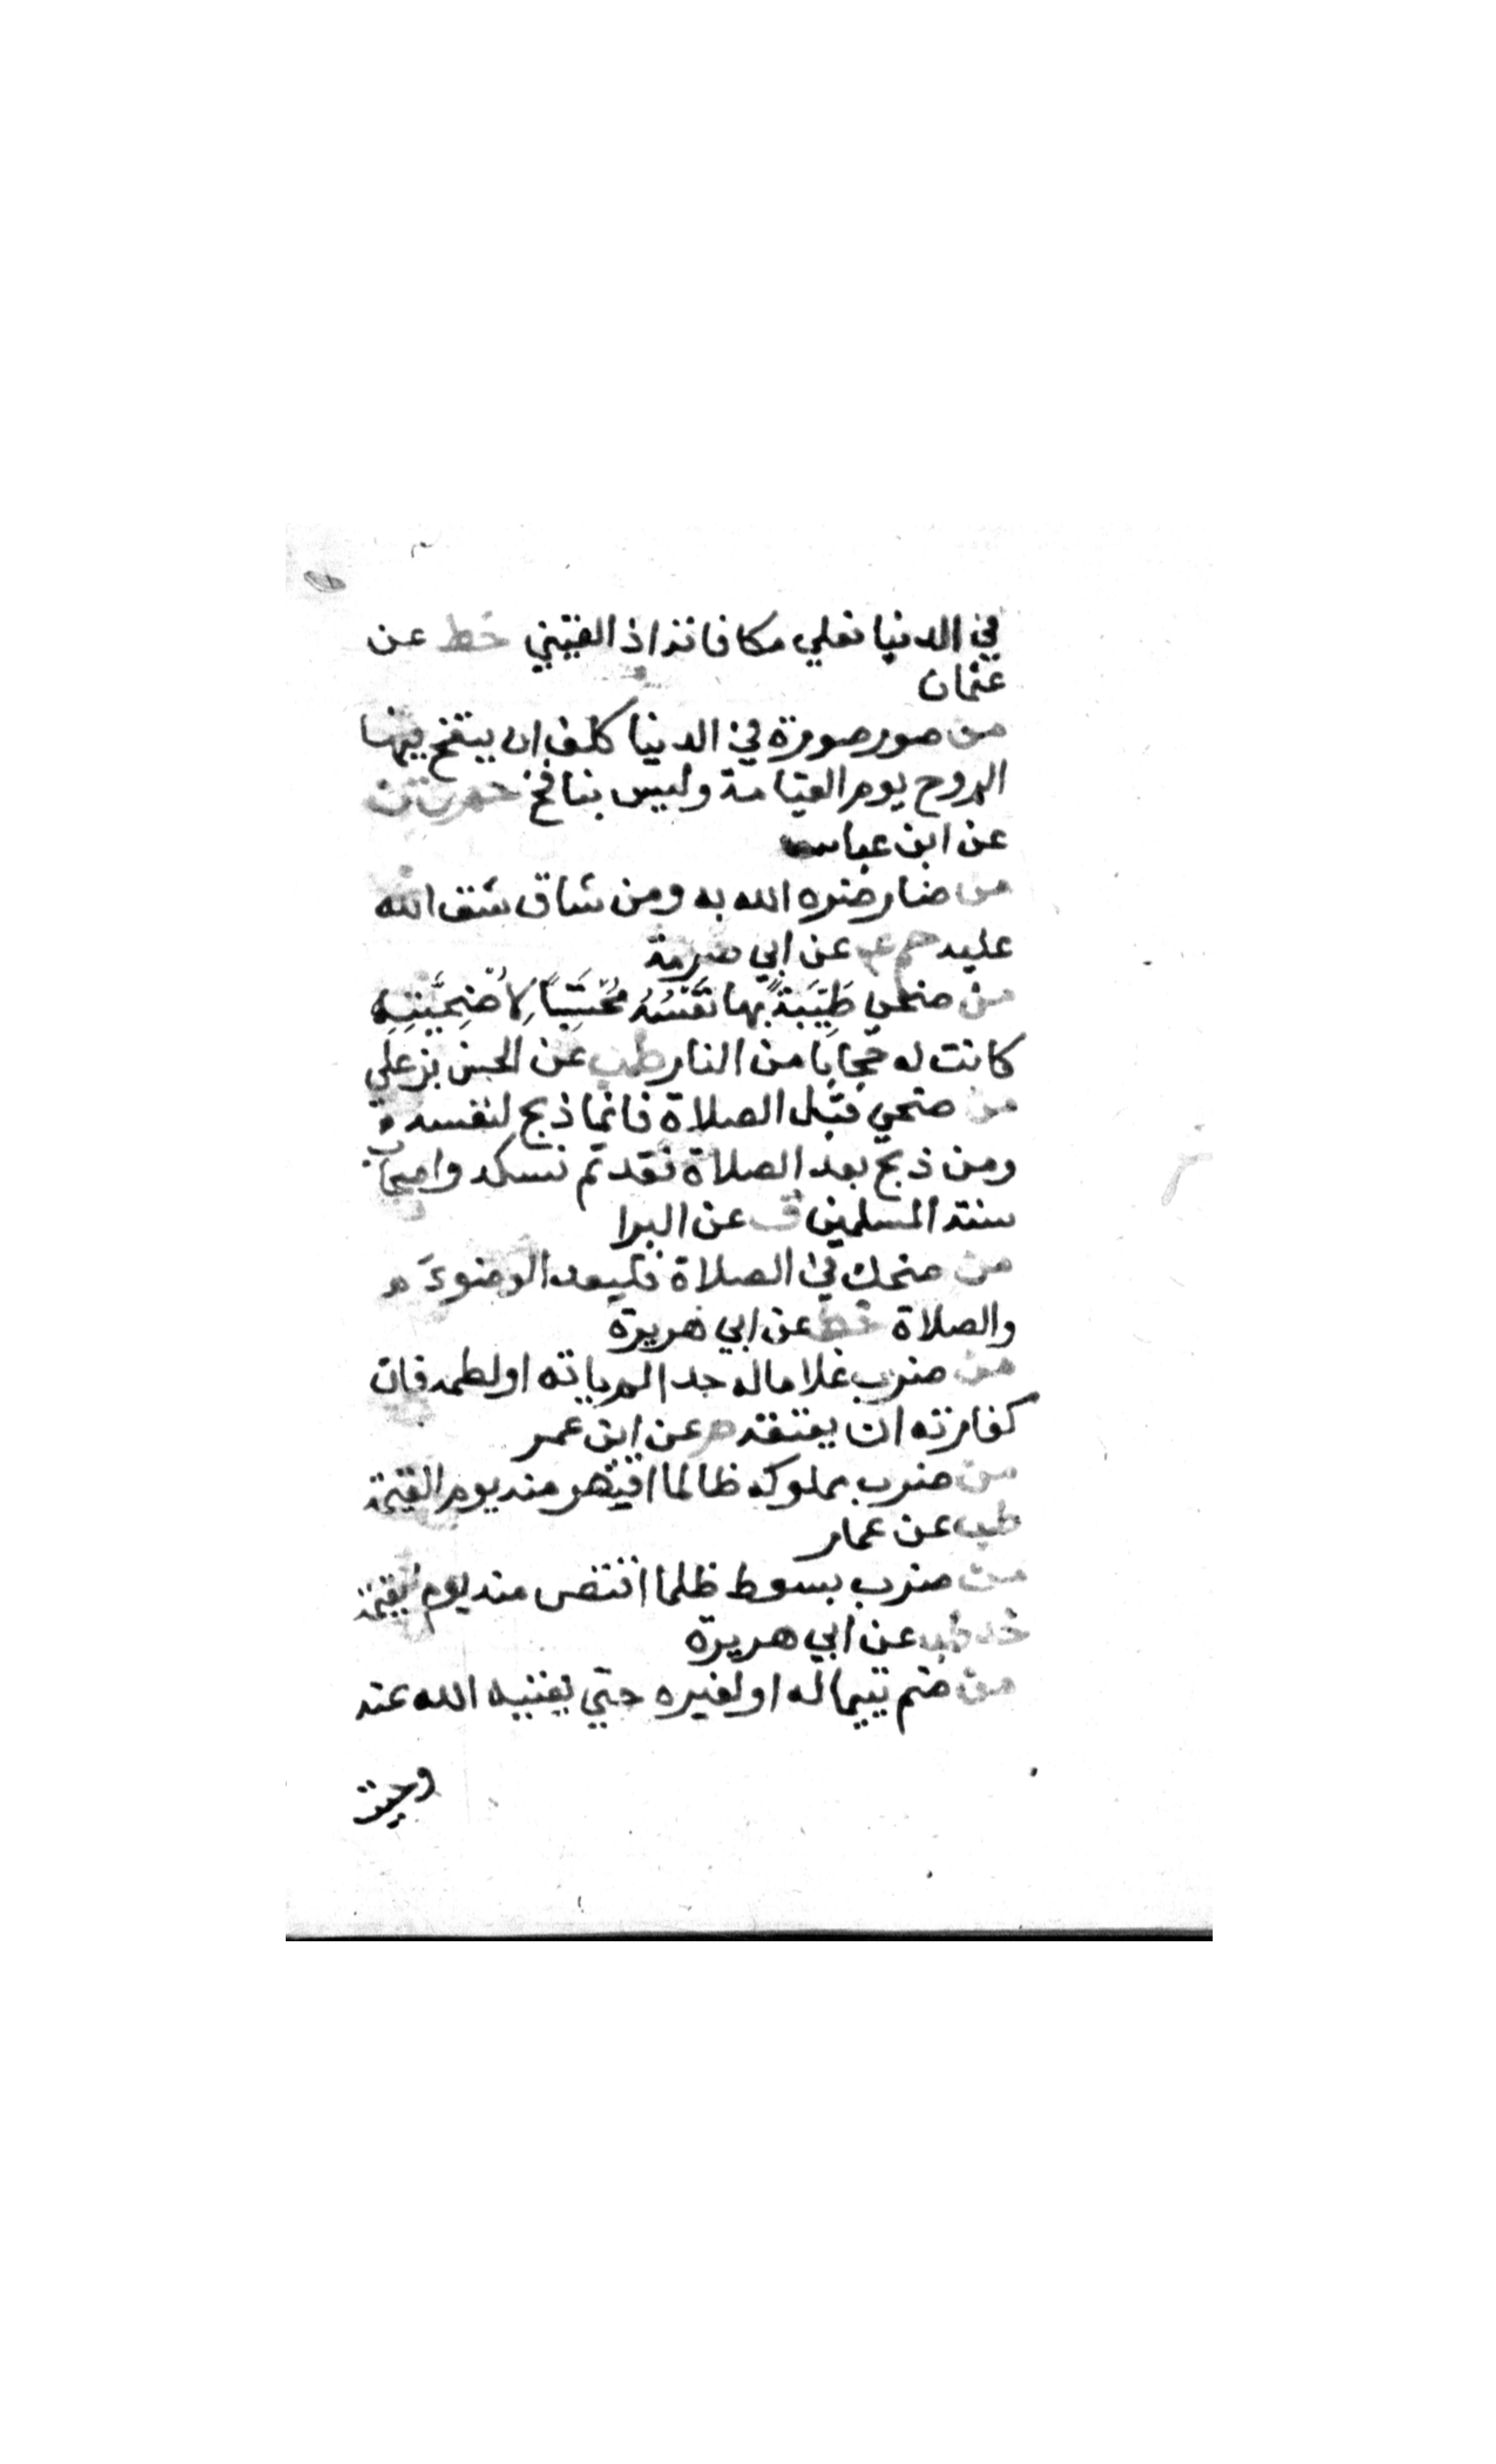 في الدنيا فعلي مكافاته اذا لقيني خط عن
عثمان
من صور صورة في الدنيا كلف ان ينفخ فيها
الروح يوم القيامة وليس بنافخ حم ق ن
عن ابن عباس
من ضار ضره الله به ومن شاق شق الله
عليه حم عم عن ابي صرمة
من ضحي طَيِّبَةً بها نَفْسُهُ مُحْتَسِبًا لِاُضْحِيَّتِهِ
كانت له حِجَابًا من النار طب عن الحسن بن علي
من ضحي قبل الصلاة فانما ذبح لنفسه
ومن ذبح بعد الصلاة فقد تم نسكه واصاب
سنة المسلمين ق عن البرا
من ضحك في الصلاة فليعد الوضوءَ
والصلاة خط عن ابي هريرة
من ضرب غلاما له حدا لم ياته او لطمه فان
كفارته ان يعتقه م عن ابن عمر
من ضرب مملوكه ظالما اقتص منه يوم القيمة
طب عن عمار
من ضرب بسوط ظلما اقتص منه يوم القيمة
خد طب عن ابي هريرة
من ضم يتيما له او لغيره حتي يغنيه الله عنه
وجبت